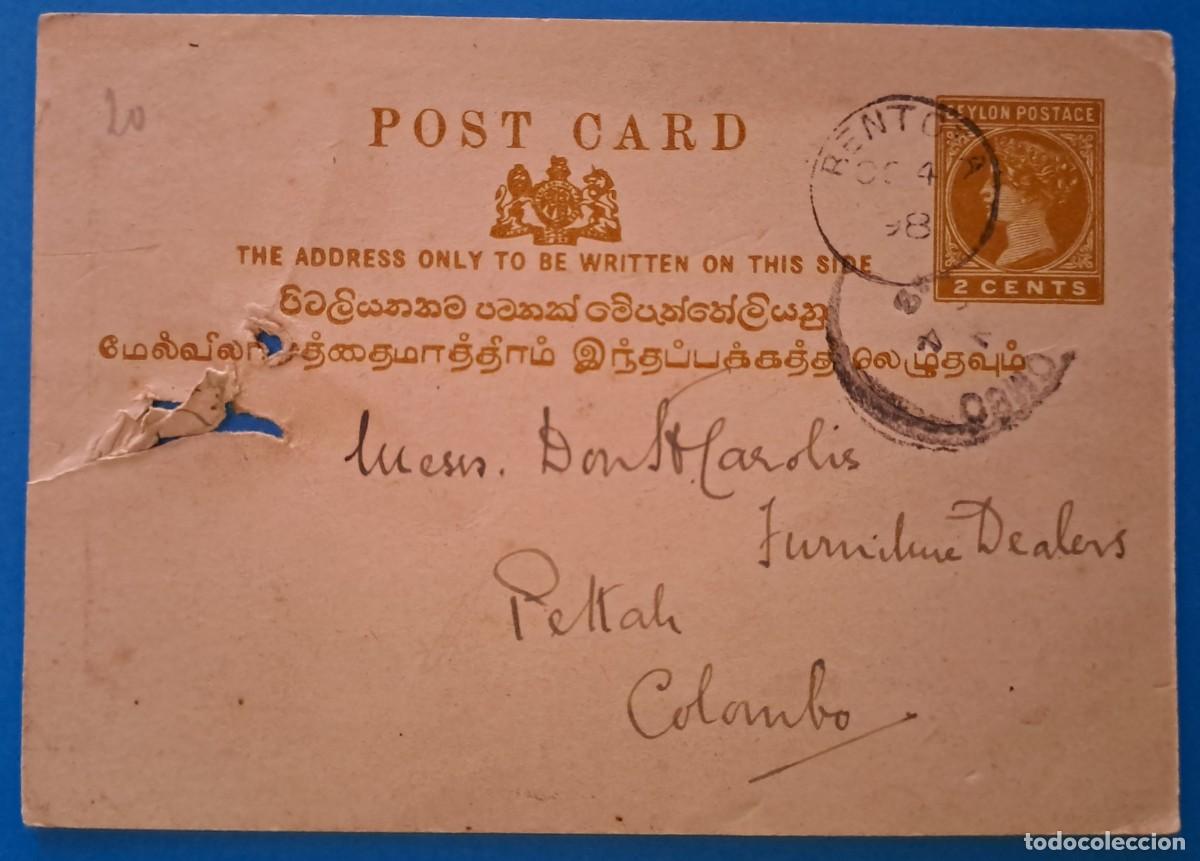 20
POST CARD
CEYLON POSTAGE
BENTOTA
OC 4
98
THE ADDRESS ONLY TO BE WRITTEN ON THIS SIDE
2 CENTS
පිටලියනනම පටනක් මේපැත්තේලියනු
மேல்விலாசத்தைமாத்திரம் இந்தப்பக்கத்திலெழுதவும்
OMBO
Messrs. Don H. Carolis
Furniture Dealers
Pettah
Colombo
todocoleccion